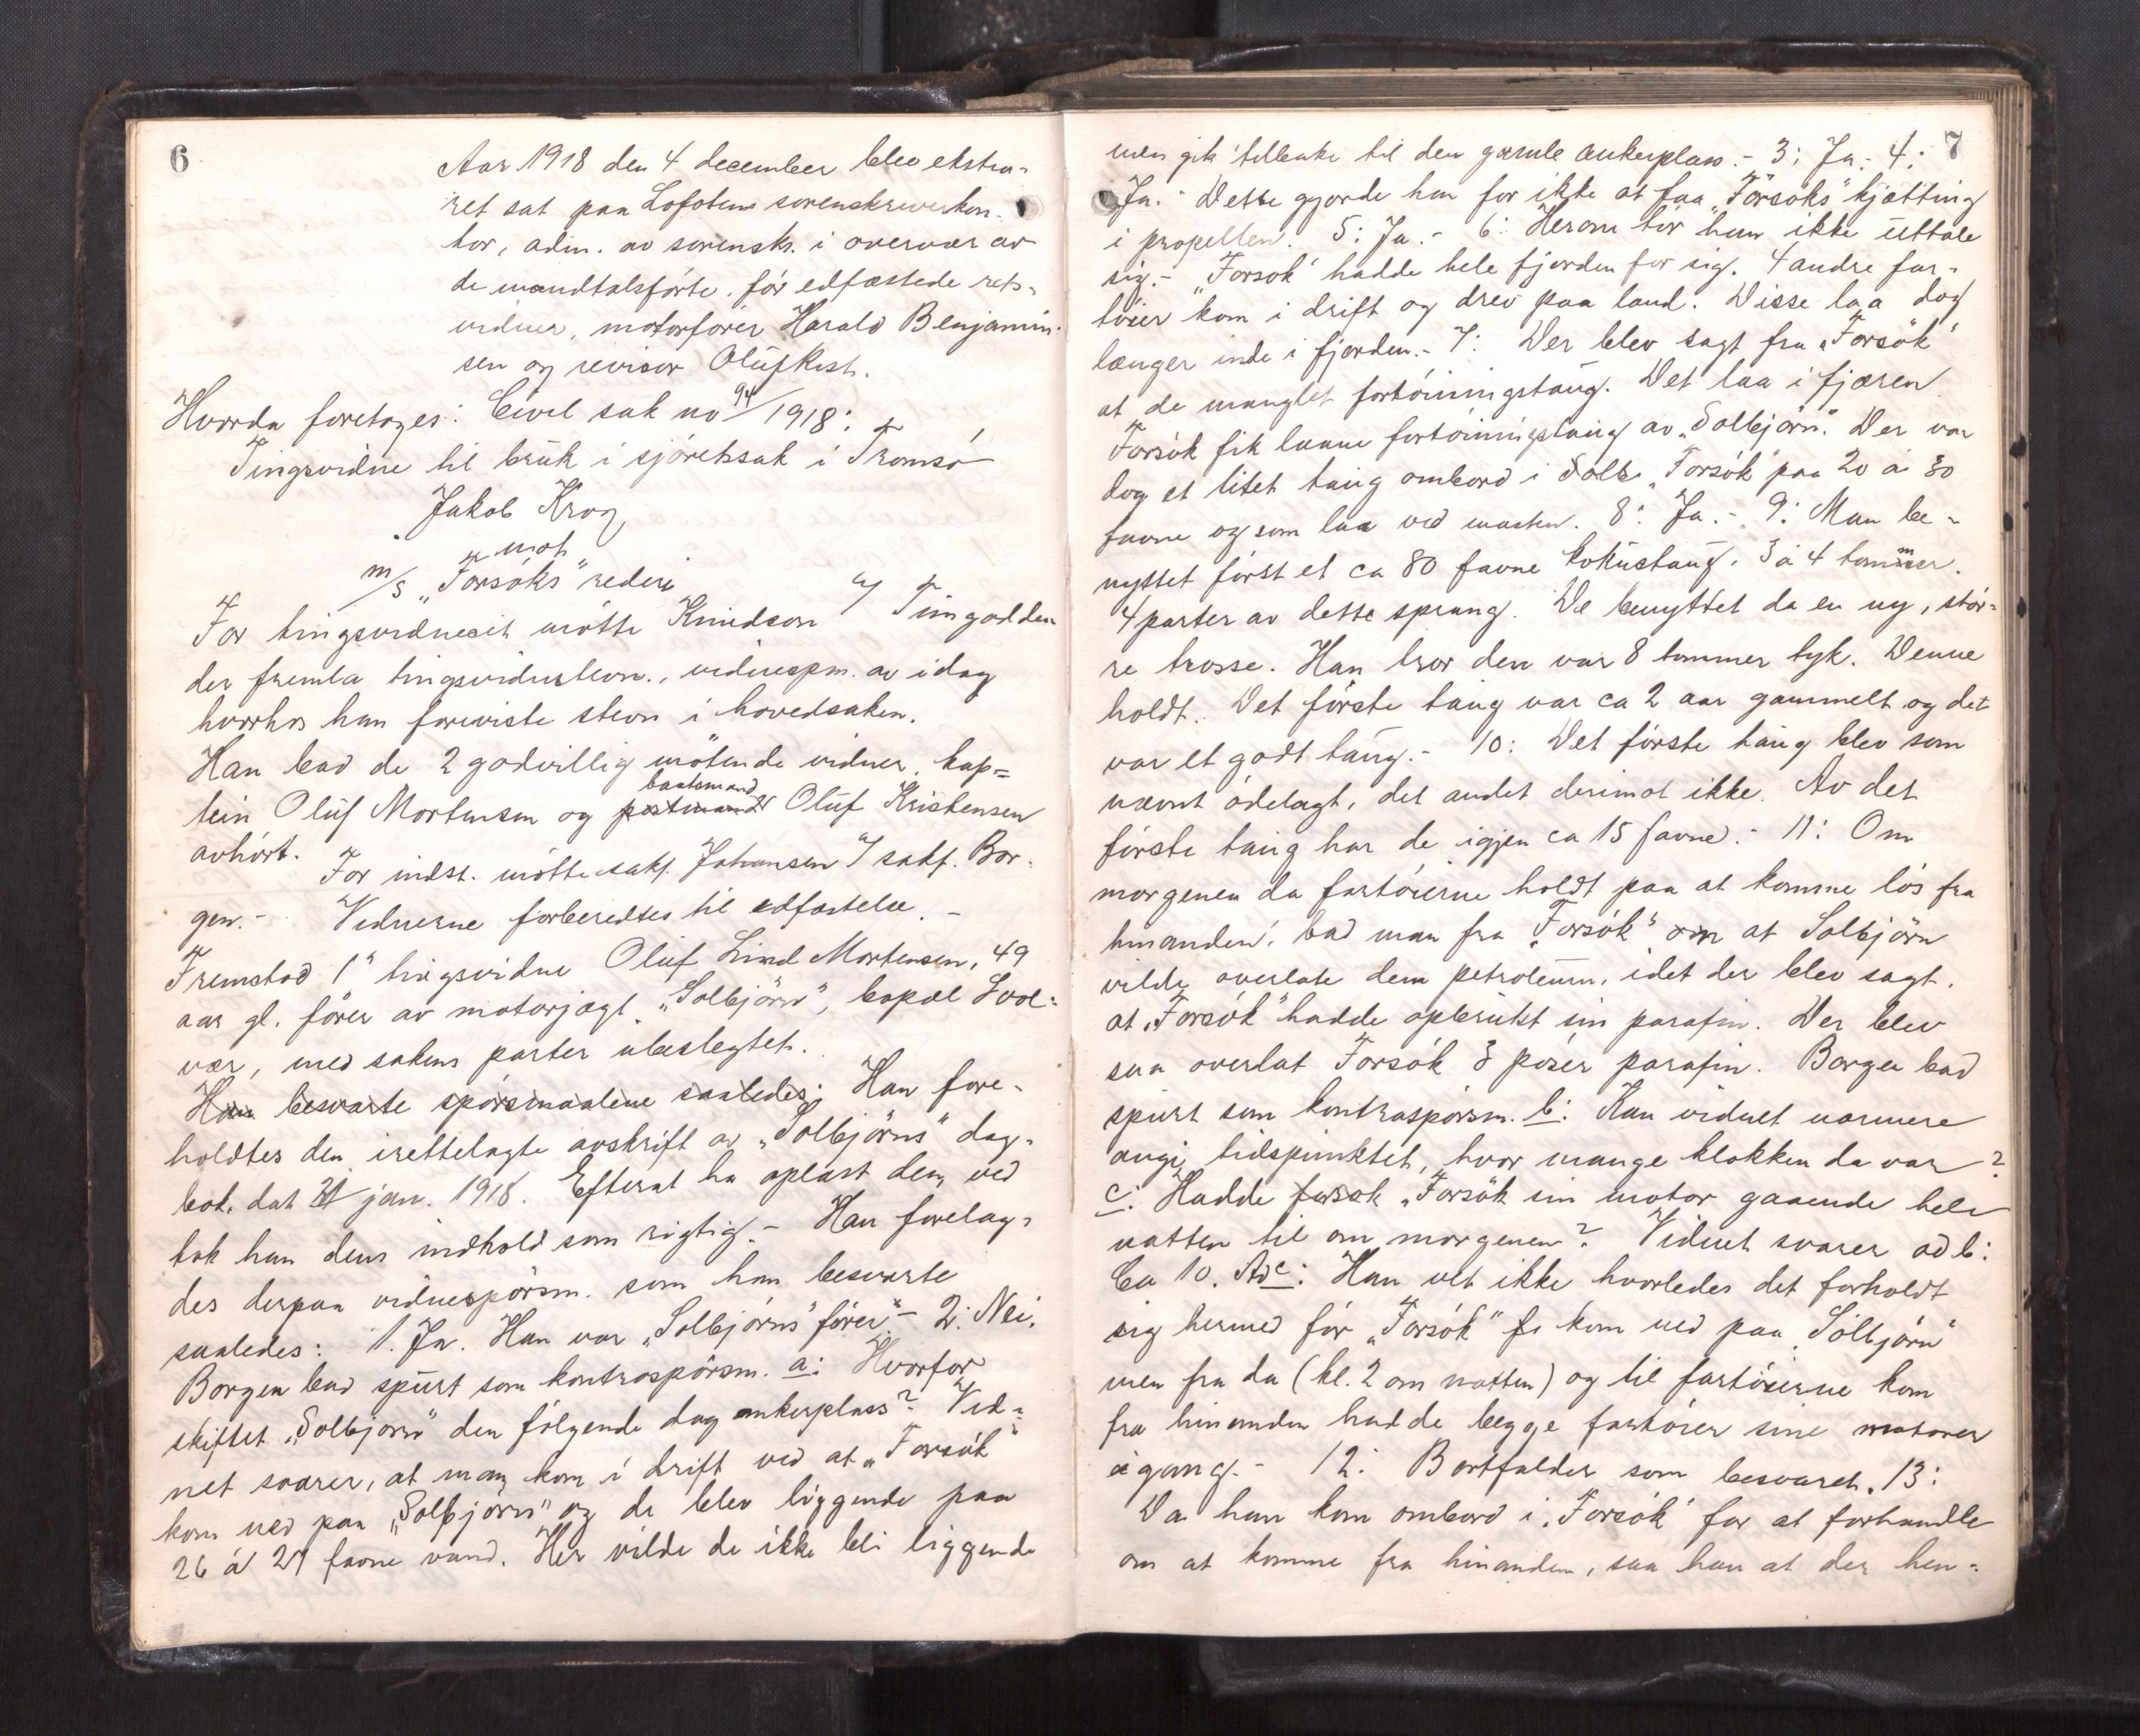 6
Aar 1918 den 4 december blev ekstra-
ret sat paa Lofotens sorenskriverkon-
tor, adm. av sorensk. i overvær av
de mandtalsförte, för edfæstede rets-
vidner, motorförer Harald Benjamin-
sen og revisor Oluf Rist.
Hvorda foretoges: Civil sak no 94/1918:
Tingsvidne til bruk i sjöretssak i Tromsö
Jakob Krog
mot
m/s "Forsöks" rederi
For tingsvidnesit mötte Knudson
der fremla tingsvidnestevn., vidnespm. av idag
hvorhos han foreviste stevn i hovedsaken.
Han bad de 2 godvillig mötende vidner, kap=
tein Oluf Mortensen og baatsmand Oluf Kristensen
avhört.
For indst. mötte sakf. Johansen f/ sakf. Bor-
gen.- Vidnerne forberedtes til edfæstelse. -
Fremstod 1° tingsvidne Oluf Lind Mortensen, 49
aar gl. förer av motorjagt "Solbjörn", bopæl Svol-
vær, med sakens parter ubeslegtet.
Han besvarte spörsmaalene saaledes: Han fore-
holdtes den irettelagte avskrift av "Solbjörns" dag-
bok, dat 31 jan. 1918. Efterat ha oplæst den, ved
tok han dens indhold som rigtig.- Han forelag-
des derpaa vidnespörsm. som han besvarte
saaledes: 1. Ja. Han var "Solbjörns" förer - 2: Nei.
Borgen bad spurt som kontraspörsm. a: Hvorfor
skiftet "Solbjörn" den fölgende dag ankerplass? Vid-
net svarer, at man kom i drift ved at "Forsök"
kom ned paa "Solbjörn" og de blev liggende paa
26 á 27 favne vand. Her vilde de ikke bli liggende
7
men gik tilbake til den gamle ankerplass.- 3: Ja.- 4:
Ja.- Dette gjorde han for ikke at faa "Forsöks" kjætting
i propellen. 5: Ja.- 6: Herom tör han ikke uttale
sig.- "Forsök" hadde hele fjorden for sig. 4 andre far-
töier kom i drift og drev paa land. Disse laa dog
længer inde i fjorden.- 7: Der blev sagt fra "Forsök"
at de manglet fortöiningstaug. Det laa i fjæren
Forsök fik laane fortöiningstaug av "Solbjörn". Der var
dog et litet taug ombord i Solb. "Forsök" paa 20 á 30
favne og som laa ved masten. 8: Ja.- 9: Man be-
nyttet först et ca 80 favne kokustaug, 3 á 4 tommer.
4 parter av dette sprang. De benyttet da en ny, stör=
re trosse. Han tror den var 8 tommer tyk. Denne
holdt. Det förste taug var ca 2 aar gammelt og det
var et godt taug.- 10: Det förste taug blev som
nævnt ödelagt, det andet derimot ikke. Av det
förste taug har de igjen ca 15 favne.- 11: Om
morgenen da fartöierne holdt paa at komme lös fra
hinanden, bad man fra "Forsök" om at Solbjörn
vilde overlate dem petroleum, idet der blev sagt,
at "Forsök" hadde opbrukt sin parafin. Der blev
saa overlat Forsök 3 pöser parafin. Borgen bad
spurt som kontraspörsm. b: Kan vidnet nærmere
angi tidspunktet, hvor mange klokken da var?
c: Hadde forsok "Forsök sin motor gaaende hele
natten til om morgenen? Vidnet svarer ad b:
Ca 10. Ad c: Han vet ikke hvorledes det forholdt
sig hermed för "Forsök" fr kom ned paa "Solbjörn"
men fra da (kl. 2 om natten) og til fartöierne kom
fra hinanden hadde begge fartöier sine motorer
igang.- 12: Bortfalder som besvaret. 13:
Da han kom ombord i "Forsök" for at forhandle
om at komme fra hinanden, saa han at der hen-